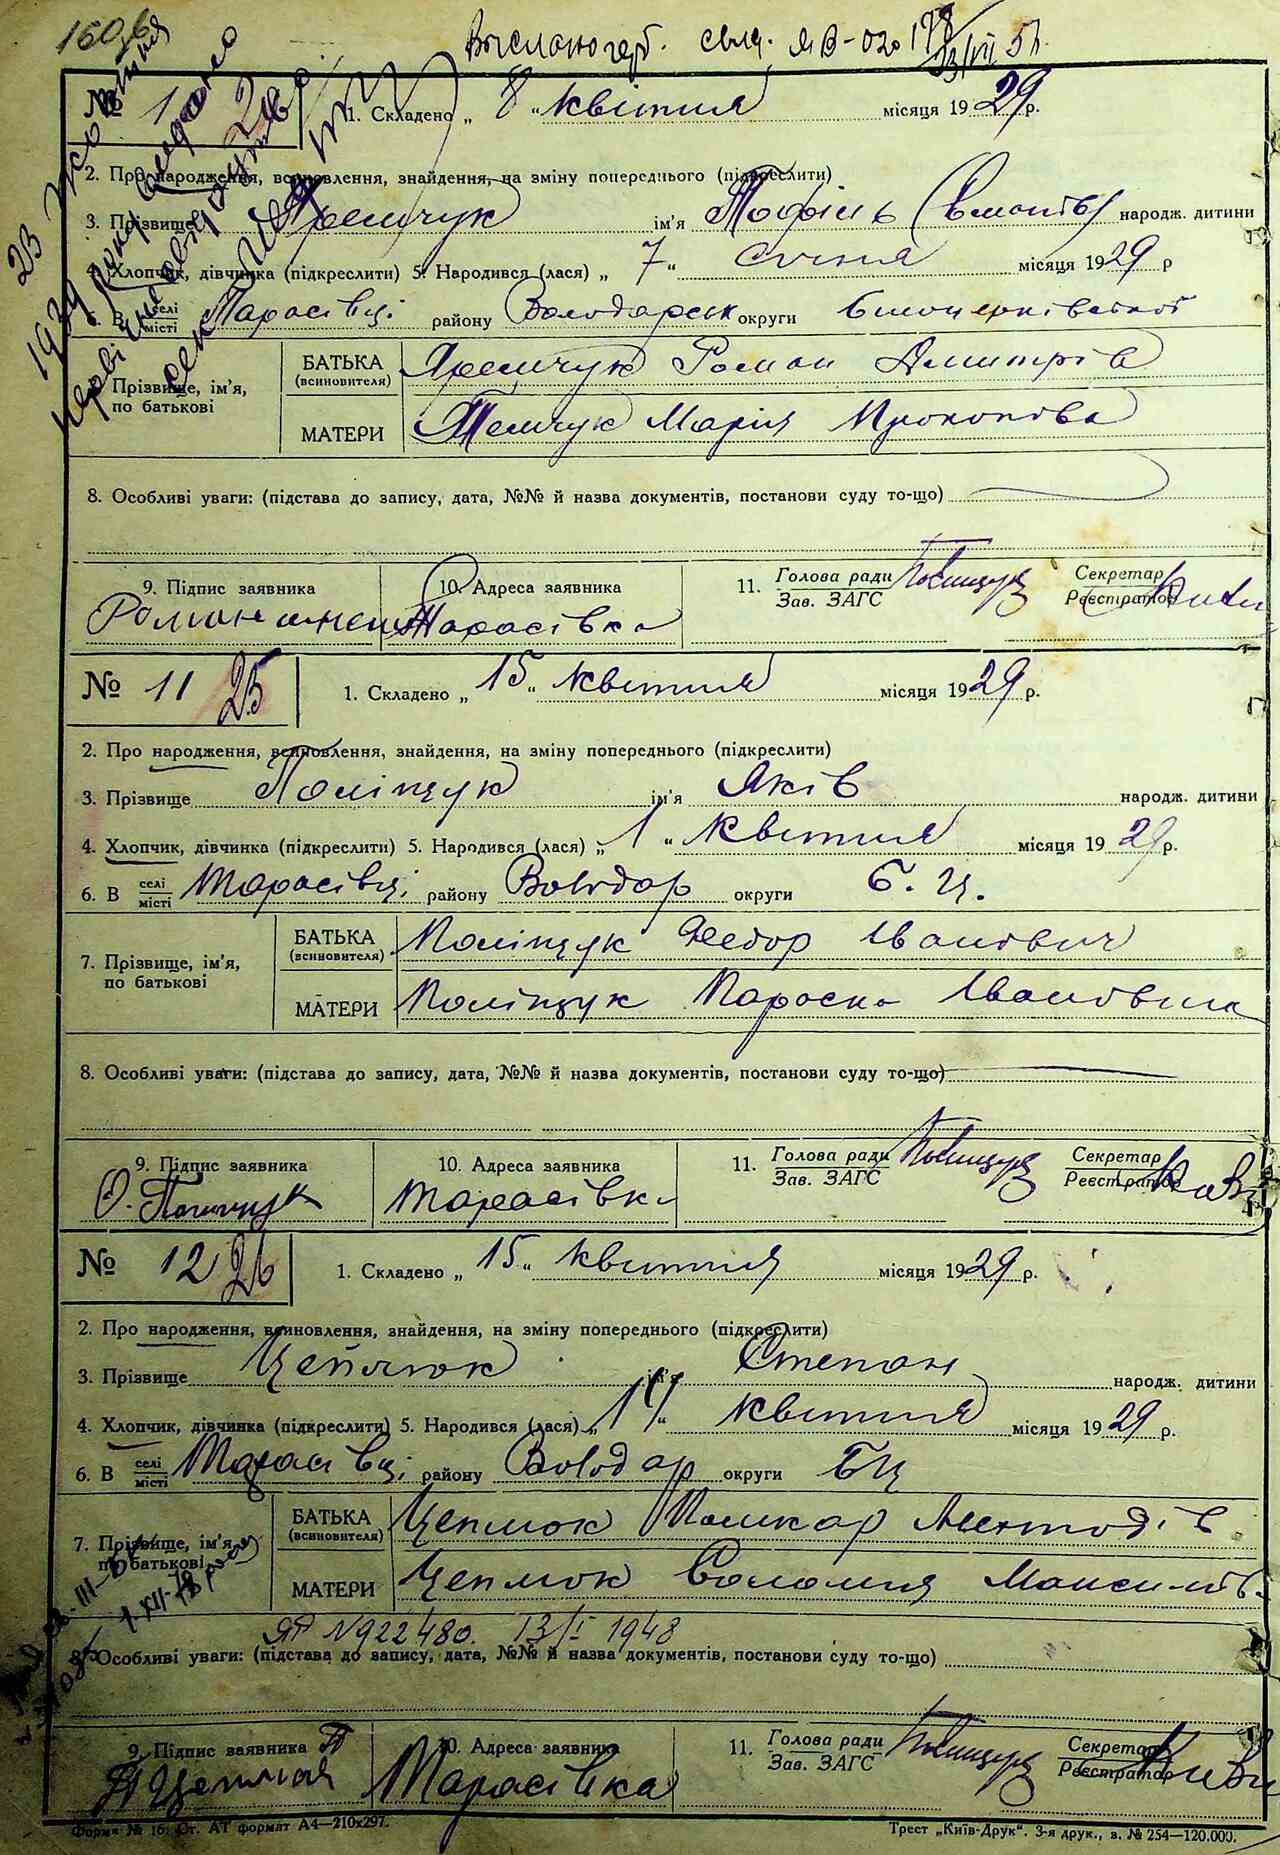 160
Выслано герб. свид. ЯВ-020178
№ 1 24 1. Складено „ 8 “ квітня місяця 1929 р.
2. Про народження, всиновлення, знайдення, на зміну попереднього (підкреслити)
3. Прізвище Яремчук ім'я Тофіль народж. дитини
4. Хлопчик, дівчинка (підкреслити) 5. Народився (лася) „ 7 “ січня місяця 1929 р
6. В селі місті Тарасівці району Володарськ округи Білоцерківської
7. Прізвище, ім'я, по батькові
БАТЬКА (всиновителя) Яремчук Роман Дмитрів
МАТЕРИ Марія Прокопова
8. Особливі уваги: (підстава до запису, дата, №№ й назва документів, постанови суду то-що)
9. Підпис заявника 10. Адреса заявника 11. Голова ради Зав. ЗАГС Секретар Реєстратор
Роман Тарасівка
№ 11 25 1. Складено „ 15 “ квітня місяця 1929 р.
2. Про народження, всиновлення, знайдення, на зміну попереднього (підкреслити)
3. Прізвище Поліщук ім'я Яків народж. дитини
4. Хлопчик, дівчинка (підкреслити) 5. Народився (лася) „ 1 “ квітня місяця 1929 р.
6. В селі місті Тарасівці району Володар округи Б. Ц.
7. Прізвище, ім'я, по батькові
БАТЬКА (всиновителя) Поліщук Федор Іванович
МАТЕРИ Поліщук Параска Івановна
8. Особливі уваги: (підстава до запису, дата, №№ й назва документів, постанови суду то-що)
9. Підпис заявника 10. Адреса заявника 11. Голова ради Зав. ЗАГС Секретар Реєстратор
Тарасівка
№ 12 26 1. Складено „ 15 “ квітня місяця 1929 р.
2. Про народження, всиновлення, знайдення, на зміну попереднього (підкреслити)
3. Прізвище Цеплюк ім'я Степан народж. дитини
4. Хлопчик, дівчинка (підкреслити) 5. Народився (лася) „ 14 “ квітня місяця 1929 р.
6. В селі місті Тарасівці району Володар округи БЦ
7. Прізвище, ім'я, по батькові
БАТЬКА (всиновителя) Цеплюк Полікар Ментодів
МАТЕРИ Цеплюк Соломия Максимів
ЯР №922480. 13/I 1948
8. Особливі уваги: (підстава до запису, дата, №№ й назва документів, постанови суду то-що)
9. Підпис заявника 10. Адреса заявника 11. Голова ради Зав. ЗАГС Секретар Реєстратор
Тарасівка
Форма № 16. Ст. АТ формат А4—210х297. Трест „Київ-Друк“. 3-я друк., з. № 254—120.000.